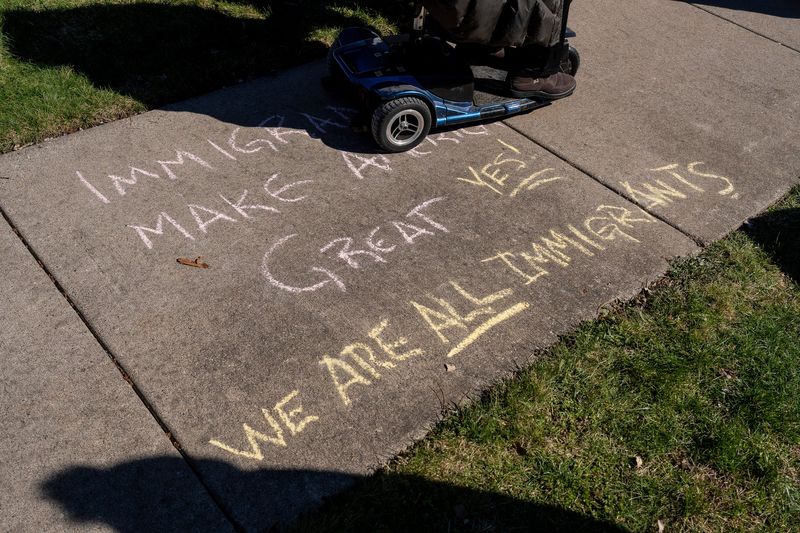 IMMIGRANTS
MAKE AMERICA
GREAT YES!
WE ARE ALL IMMIGRANTS.